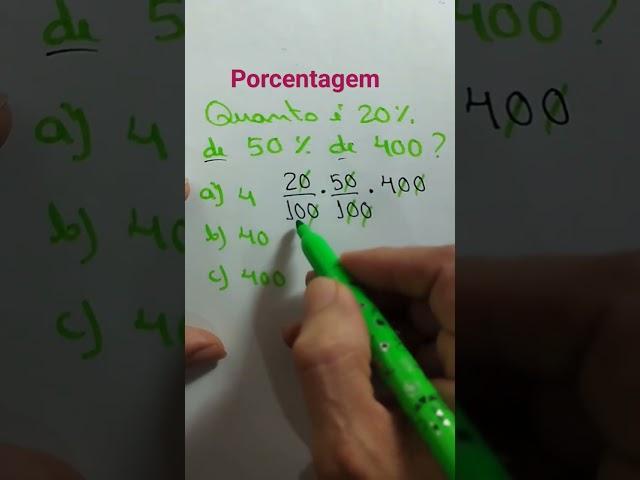 Porcentagem
Quanto é 20%
de 50% de 400?
a) 4
20/100 · 50/100 · 400
b) 40
c) 400